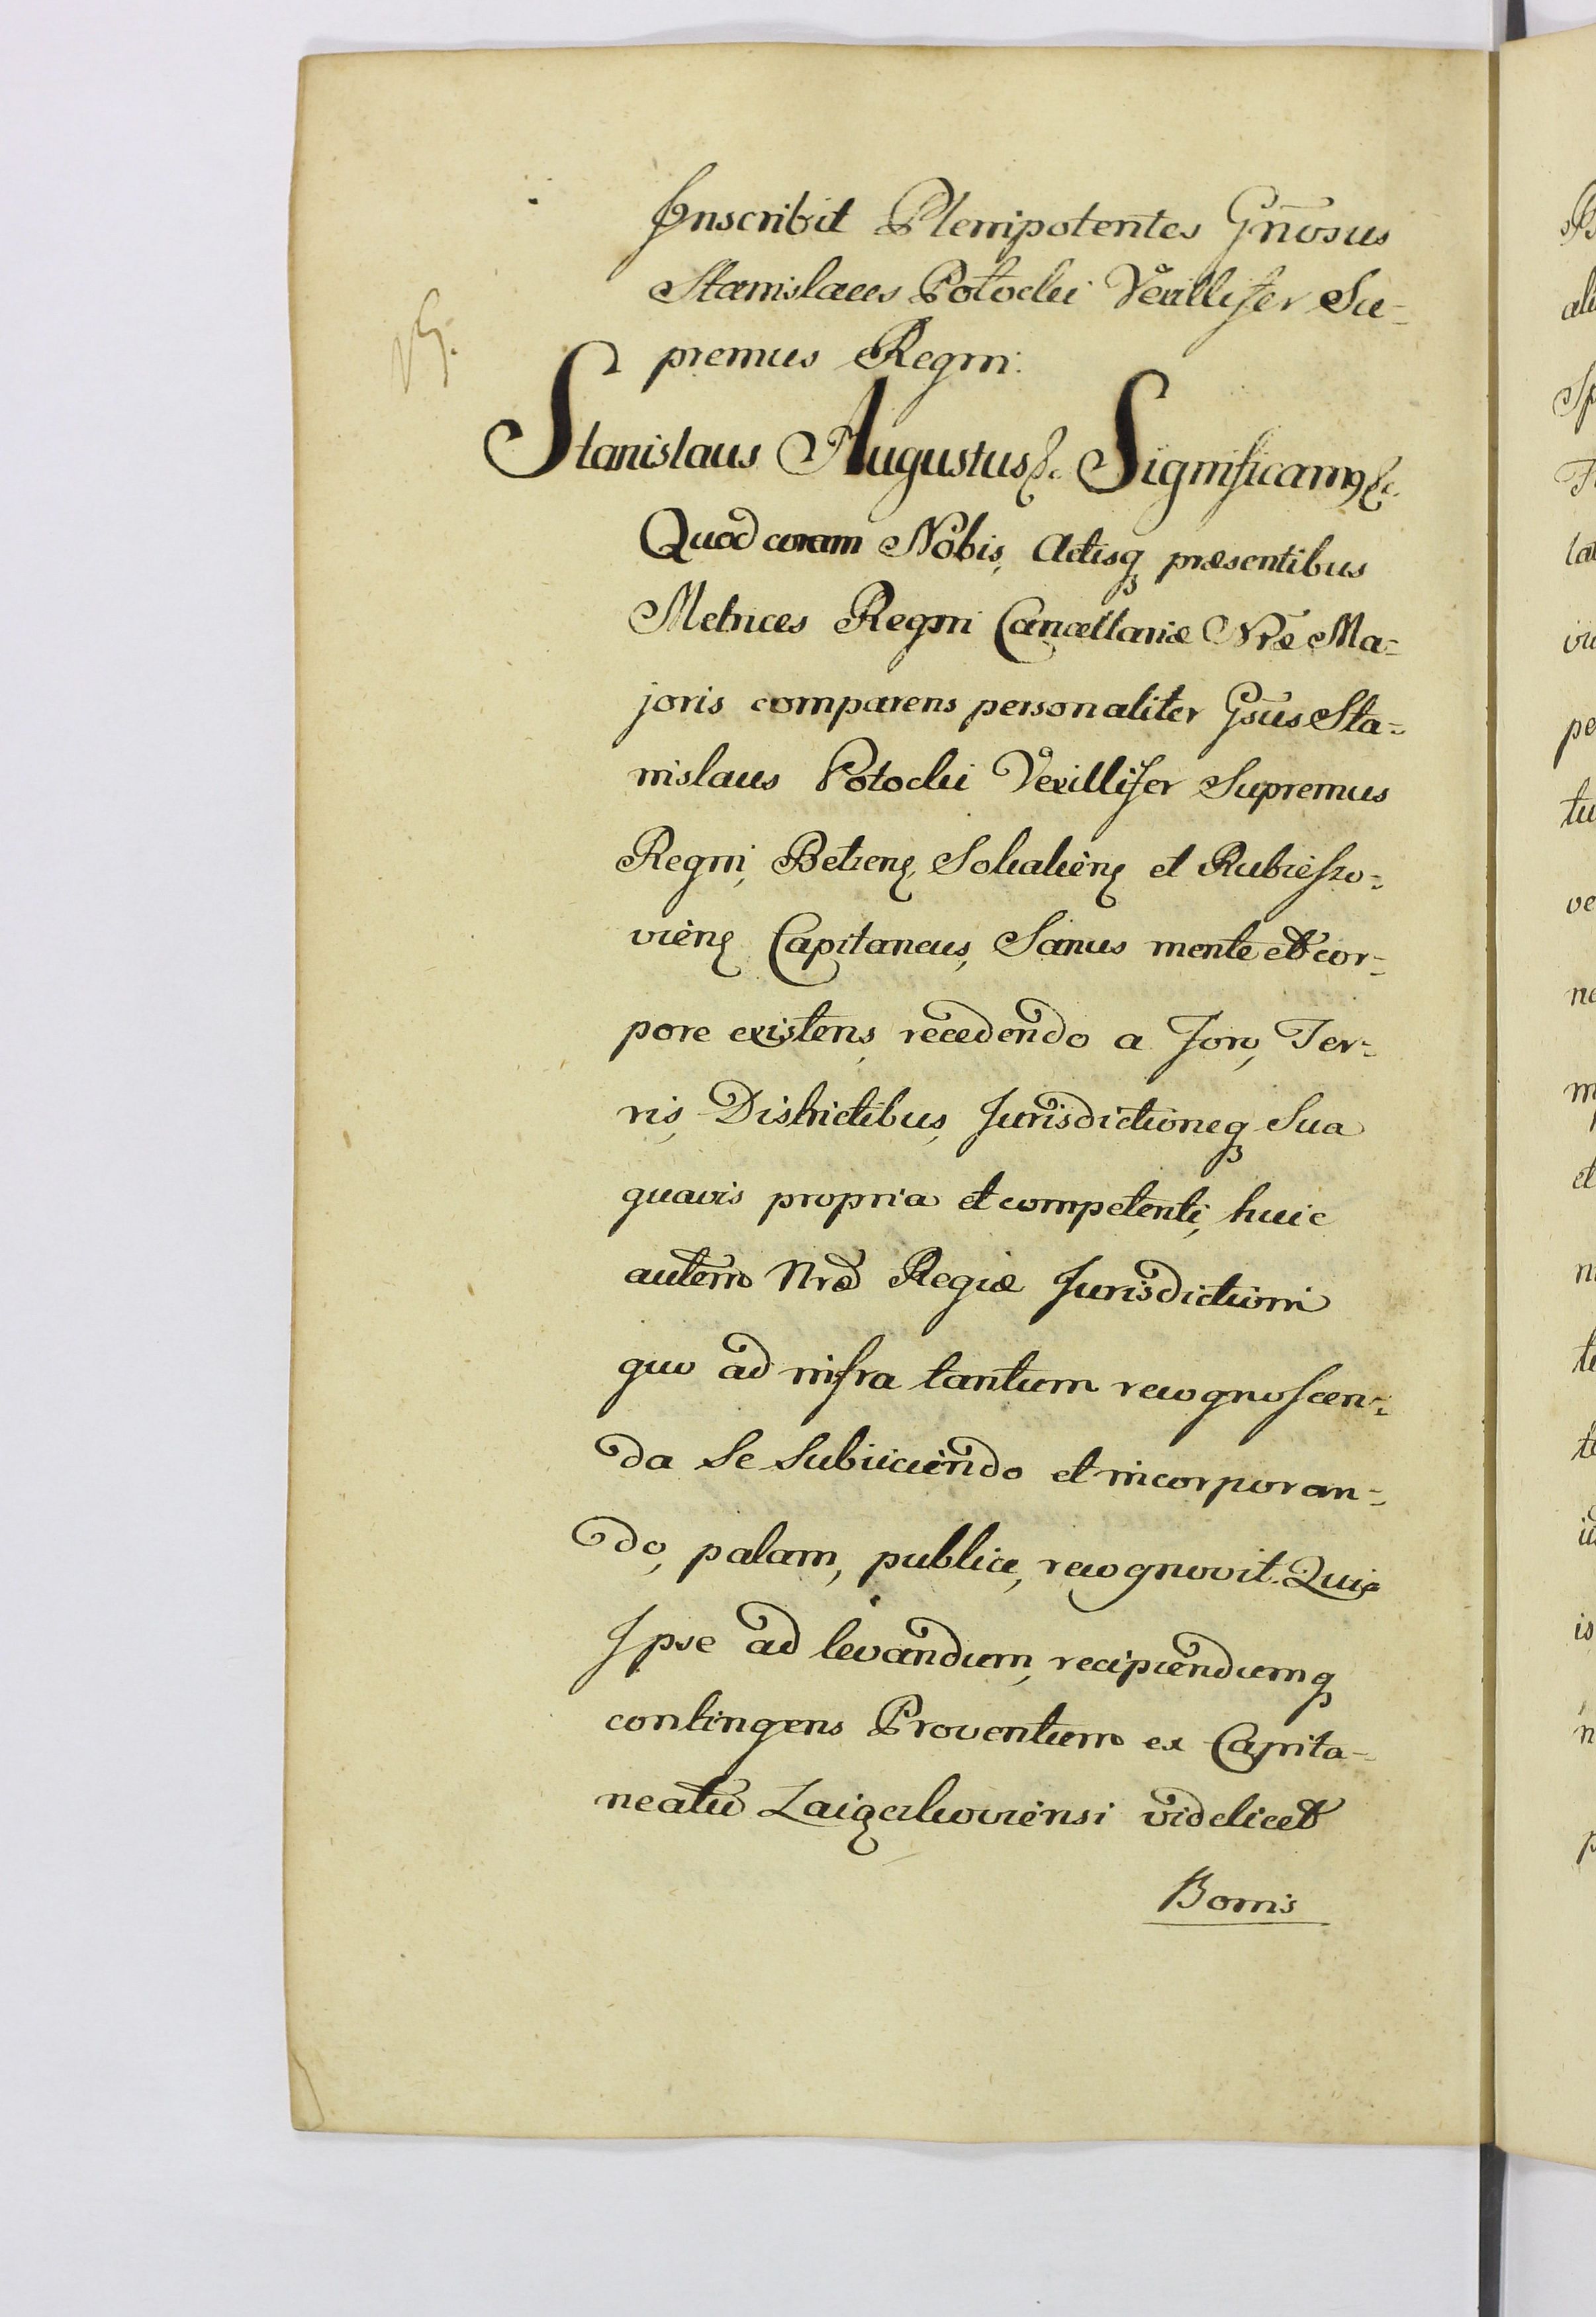 Inscribit Plenipotentes Gñosus
Stanislaus Potocki Vexillifer Su=
premus Regni.
Stanislaus Augustus &c. Significamꝰ &c.
Quod coram Nobis, Actisq̃ præsentibus
Metrices Regni Cancellariæ Nræ Ma=
joris comparens personaliter Gsus Sta=
nislaus Potocki Vexillifer Supremus
Regni, Belzens, Sokaliens et Rubieszo=
viens Capitaneus, Sanus mente et cor=
pore existens, recedendo a Foro, Ter=
ris, Districtibus, Jurisdictioneq̃ Sua
quavis propria et competenti, huic
autem Nræ Regiæ Jurisdictioni
quo ad infra tantum recognoscen=
da Se Subiiciendo et incorporan=
do, palam, publice, recognovit. Quia
Ipse ad levandum, recipiendumq̃
contingens Proventum ex Capita=
neatu videlicet
Bonis